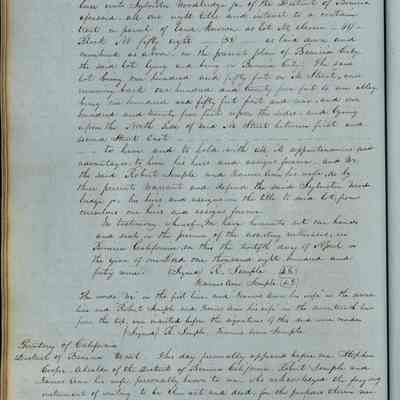 unto Sylvester Woodbridge jr. of the District of Benicia
aforesaid all our right title and interest to a certain
tract or parcel of land known as lot No eleven - 11 -
Block No fifty eight - 58 - as laid down and
numbered as above on the present plan of Benicia City
the said lot lying and being in Benicia City. The said
lot being one hundred and fifty feet on M Street, and
running back one hundred and twenty five feet to an alley
being one hundred and fifty feet front and rear, and one
hundred and twenty five feet upon the sides and lying
upon the North side of said M Street between first and
second Street East
to him and to hold with all it appurtenances and
advantages, to him his heirs and assigns forever. and we
the said Robert Semple and Frances Ann his wife, do by
these presents warrant and defend the said Sylvester Wood
bridge jr. his heirs and assigns in the title to said lot, from
ourselves our heirs and assigns forever.
In testimony whereof We have hereunto set our hands
and seals in the presence of the attesting witnesses, in
Benicia California on this the twelfth day of April in
the year of our Lord one thousand eight hundred and
forty nine. (Signed) R. Semple (LS)
Frances Ann Semple (LS)
The words "We" in the first line and Frances Ann his wife in the second
line and Robert Semple and Frances Ann his wife in the
from the top, were inserted before the signature of this deed were made
(Signed) R. Semple, Frances Ann Semple
Territory of California
District of Benicia To wit. This day personally appeared before me Stephen
Cooper Alcalde of the District of Benicia California Robert Semple and
Frances Ann his wife, personally known to me who acknowledged the foregoing
instrument of writing to be their act and deed, for the purposes therein men-